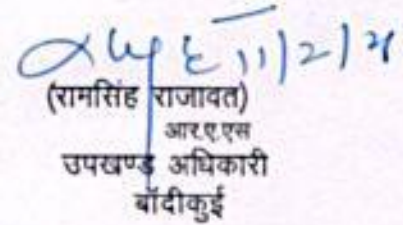 11/2/21
(रामसिंह राजावत)
आर.ए.एस
उपखण्ड अधिकारी
बॉदीकुई